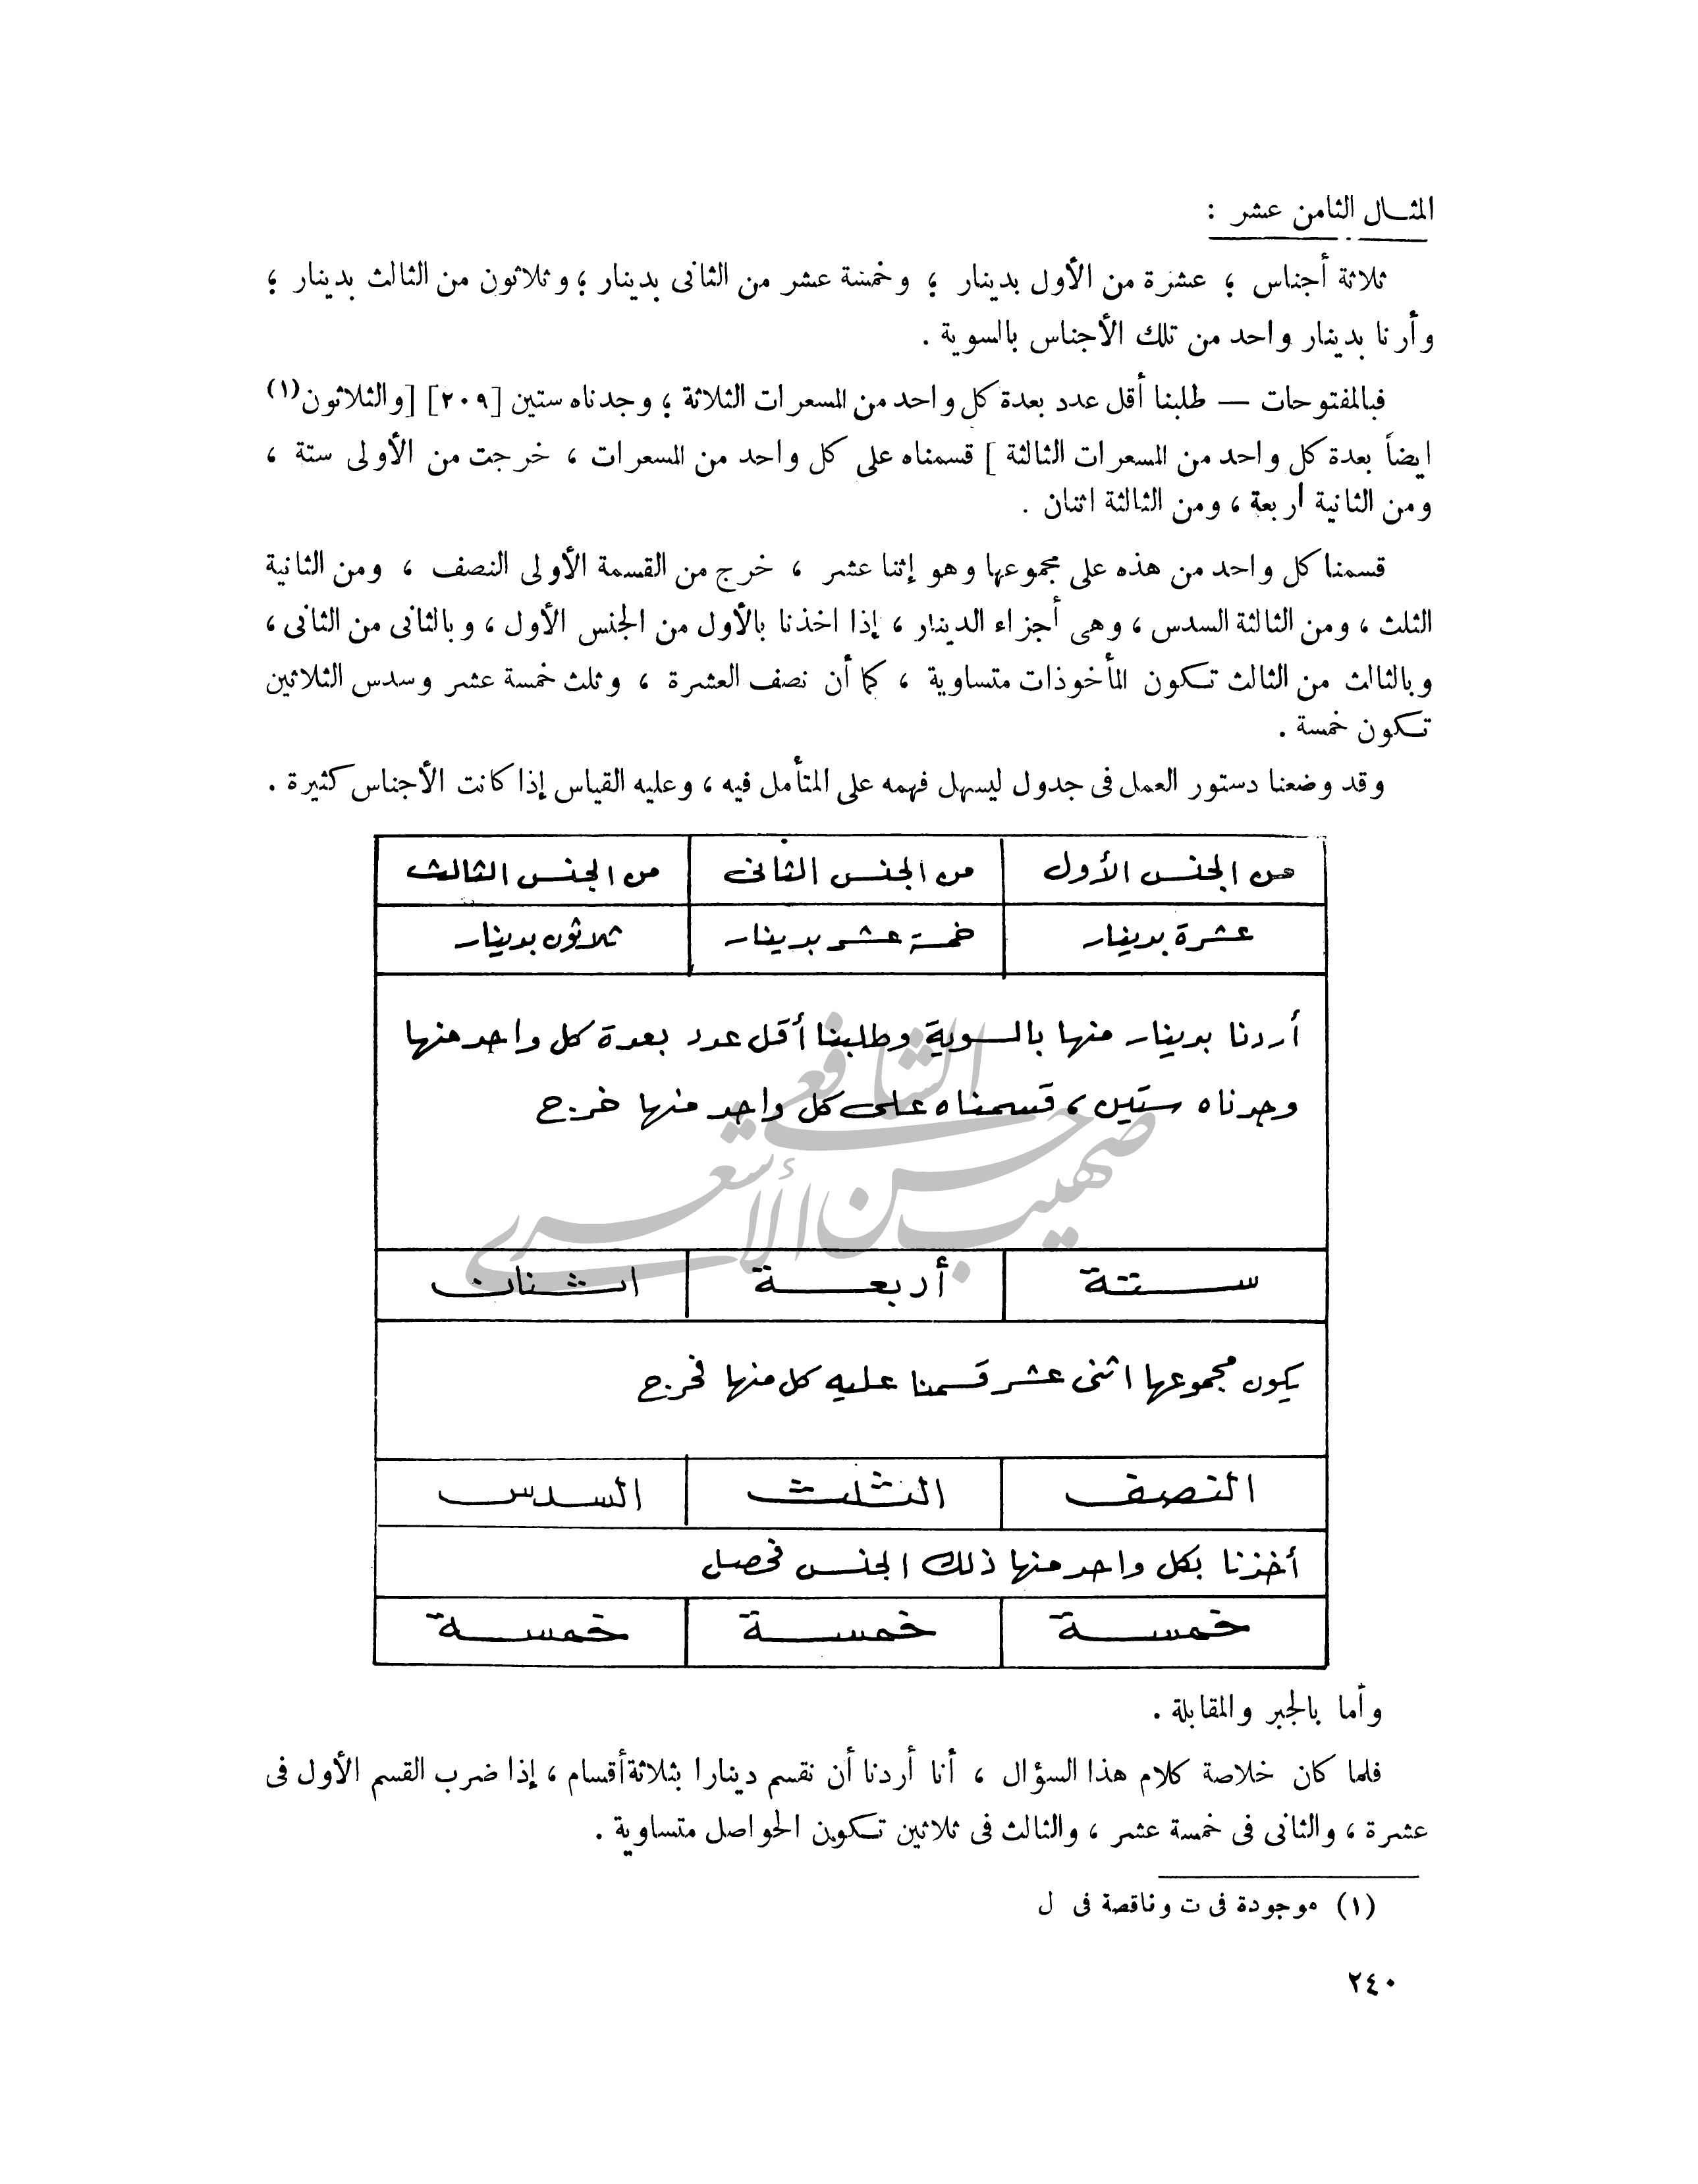 المثــال الثامن عشر :
ثلاثة أجناس ؛ عشرة من الأول بدينار ؛ وخمسة عشر من الثانى بدينار ؛ وثلاثون من الثالث بدينار ؛
وأرنا بدينار واحد من تلك الأجناس بالسوية .
فبالمفتوحات — طلبنا أقل عدد بعدة كل واحد من المسعرات الثلاثة ؛ وجدناه ستين [٢٠٩] [والثلاثون(١)
ايضاً بعدة كل واحد من المسعرات الثالثة ] قسمناه على كل واحد من المسعرات ، خرجت من الأولى ستة ،
ومن الثانية أربعة ، ومن الثالثة اثنان .
قسمنا كل واحد من هذه على مجموعها وهو إثنا عشر ، خرج من القسمة الأولى النصف ، ومن الثانية
الثلث ، ومن الثالثة السدس ، وهى أجزاء الدينار ، إذا اخذنا بالأول من الجنس الأول ، وبالثانى من الثانى ،
وبالثالث من الثالث تـكون المأخوذات متساوية ، كما أن نصف العشرة ، وثلث خمسة عشر وسدس الثلاثين
تـكون خمسة .
وقد وضعنا دستور العمل فى جدول ليسهل فهمه على المتأمل فيه ، وعليه القياس إذا كانت الأجناس كثيرة .
من الجنس الأول من الجنس الثانى من الجنس الثالث
عشرة بدينار خمسة عشر بدينار ثلاثون بدينار
أردنا بدينار منها بالسوية وطلبنا أقل عدد بعدة كل واحد منها
وجدناه ستين ، قسمناه على كل واحد منها خرج
الشافعي
صهيب حسن الأشعري
ستة أربعة اثنان
يكون مجموعها اثنى عشر قسمنا عليه كل منها فخرج
النصف الثلث السدس
أخذنا بكل واحد منها ذلك الجنس فحصل
خمسة خمسة خمسة
وأما بالجبر والمقابلة .
فلما كان خلاصة كلام هذا السؤال ، أنا أردنا أن نقسم دينارا بثلاثة أقسام ، إذا ضرب القسم الأول فى
عشرة ، والثانى فى خمسة عشر ، والثالث فى ثلاثين تـكون الحواصل متساوية .
(١) موجودة فى ت وناقصة فى ل
٢٤٠